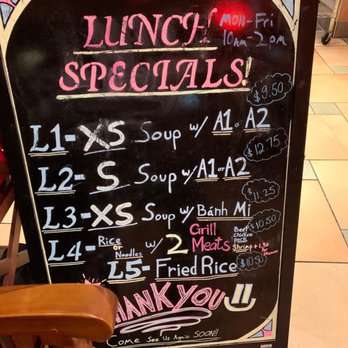 LUNCH MON-Fri
10am-2pm
SPECIALS!
$9.50
L1-XS Soup w/ A1 or A2
$12.75
L2-S Soup w/ A1 or A2
$11.25
L3-XS Soup w/ Bánh Mi
$10.50
L4- Rice or Noodles w/ 2 Grill Meats Beef Chicken Pork Shrimp
L5- Fried Rice $10.50
THANK YOU
Come See Us Again SOON!